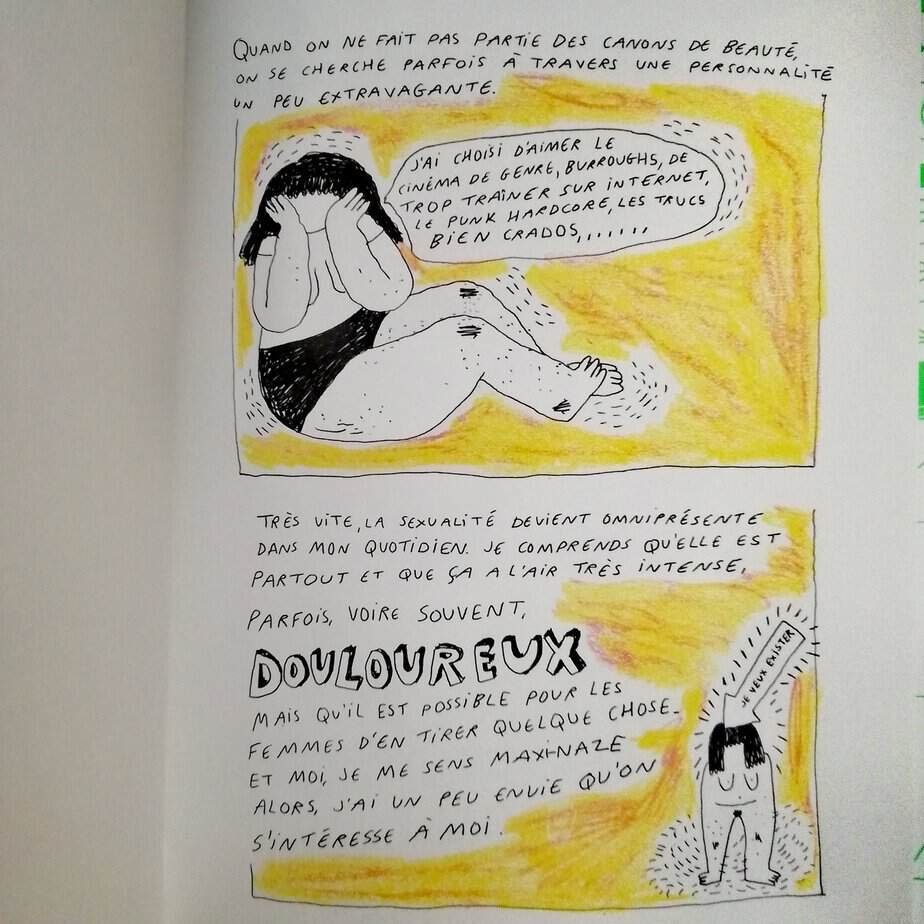 QUAND ON NE FAIT PAS PARTIE DES CANONS DE BEAUTÉ,
ON SE CHERCHE PARFOIS À TRAVERS UNE PERSONNALITÉ
UN PEU EXTRAVAGANTE.
J'AI CHOISI D'AIMER LE
CINÉMA DE GENRE, BURROUGHS, DE
TROP TRAÎNER SUR INTERNET,
LE PUNK HARDCORE, LES TRUCS
BIEN CRADOS,,.....
TRÈS VITE, LA SEXUALITÉ DEVIENT OMNIPRÉSENTE
DANS MON QUOTIDIEN. JE COMPRENDS QU'ELLE EST
PARTOUT ET QUE ÇA A L'AIR TRÈS INTENSE,
PARFOIS, VOIRE SOUVENT,
DOULOUREUX
MAIS QU'IL EST POSSIBLE POUR LES
FEMMES D'EN TIRER QUELQUE CHOSE.
ET MOI, JE ME SENS MAXI-NAZE
ALORS, J'AI UN PEU ENVIE QU'ON
S'INTÉRESSE À MOI.
JE VEUX EXISTER